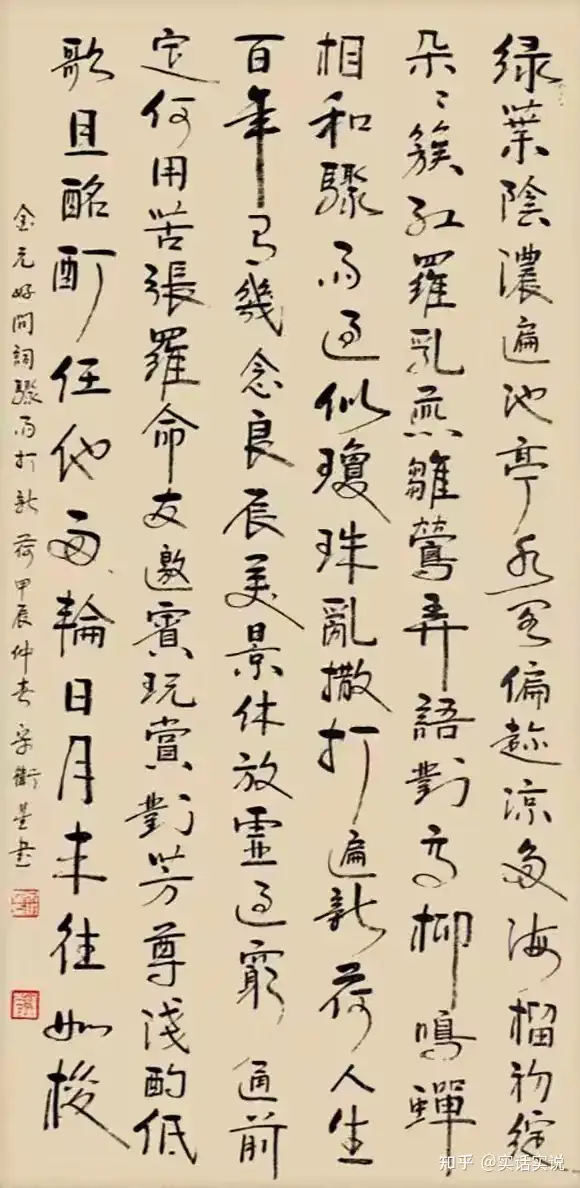 绿葉陰濃遍池亭水阁偏趁涼多海榴初綻
朵朵簇红羅乳燕雛鶯弄語對高柳鳴蟬
相和驟雨过似瓊珠亂撒打遍新荷人生
百年有幾念良辰美景休放虛过窮通前
定何用苦張羅命友邀賓玩賞對芳尊淺酌低
歌且酩酊任他两輪日月来往如梭
金元好问词驟雨打新荷甲辰仲春衛星书
知乎 @实话实说